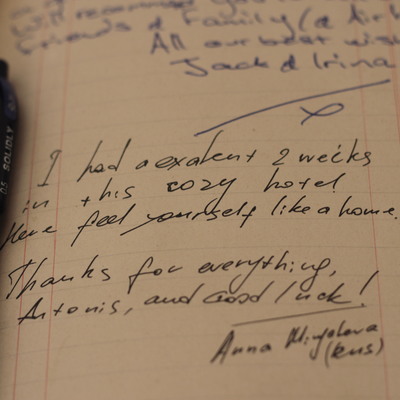 will recommend you to
Friends & Family/a
All our best
Jack & Irina
x
I had a exalent 2 weeks
in this cozy hotel
Here feel yourself like a home.
Thanks for everything,
Antonis, and Good luck!
Anna
(Rus)
SOLIDLY